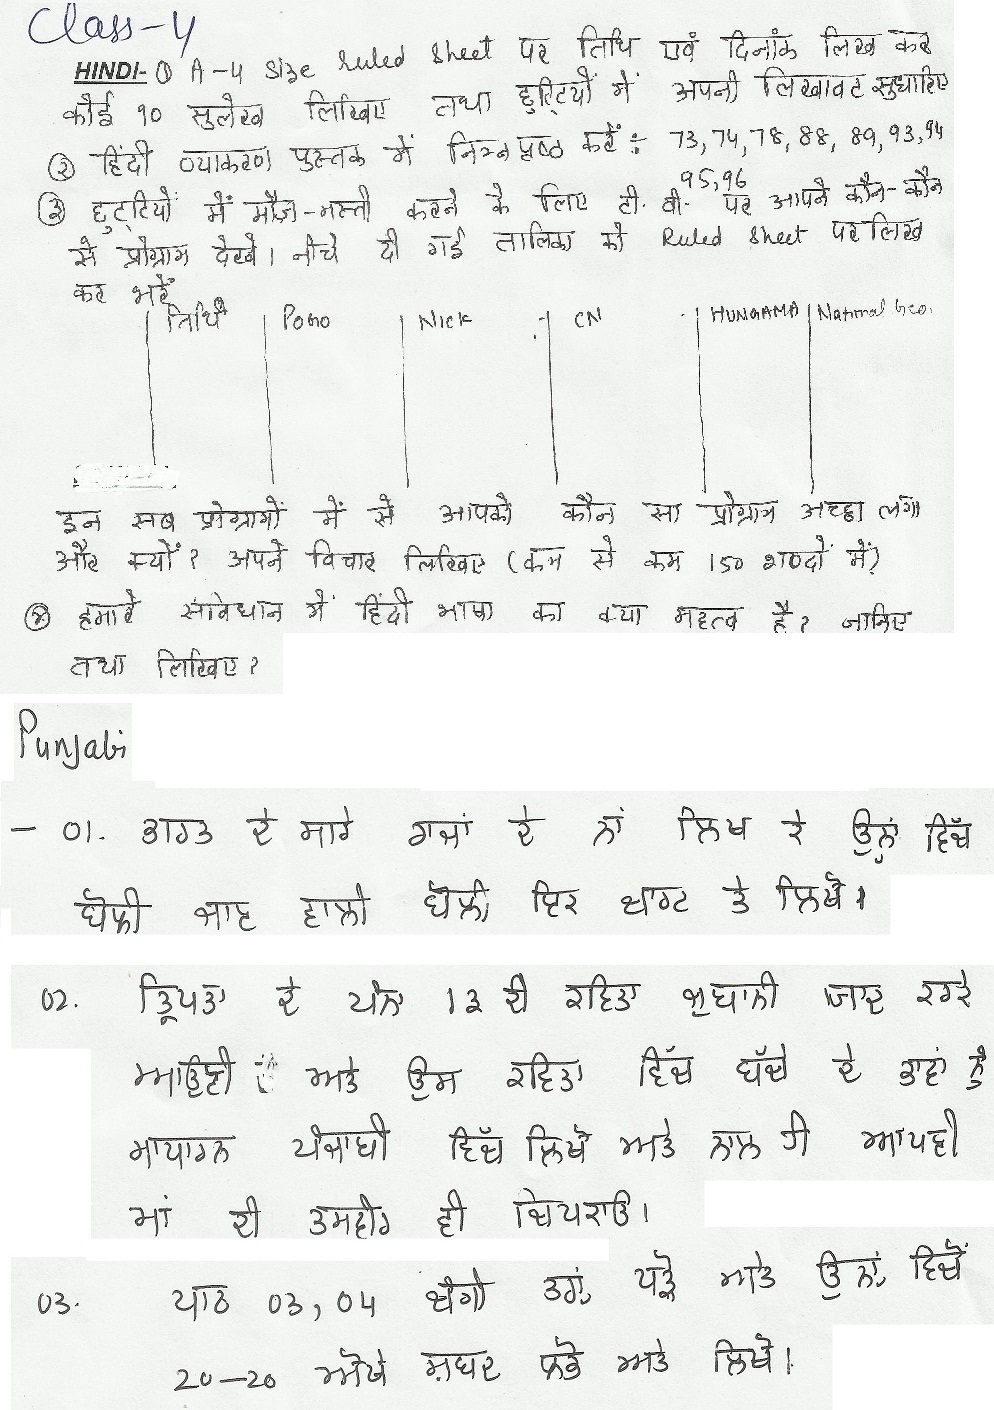 Class-4
HINDI- ① A-4 Size Ruled Sheet पर तिथि एवं दिनांक लिख कर
कोई 10 सुलेख लिखिए तथा छुट्टियों में अपनी लिखावट सुधारिए
② हिंदी व्याकरण पुस्तक में निम्न पृष्ठ करें : 73, 74, 78, 88, 89, 93, 94
95, 96
③ छुट्टियों में मौज-मस्ती करने के लिए टी. वी. पर आपने कौन-कौन
से प्रोग्राम देखे। नीचे दी गई तालिका को Ruled Sheet पर लिख
कर भरें
तिथि Pogo Nick CN HUNGAMA National Geo.
इन सब प्रोग्रामों में से आपको कौन सा प्रोग्राम अच्छा लगा
और क्यों? अपने विचार लिखिए (कम से कम 150 शब्दों में)
④ हमारे संविधान में हिंदी भाषा का क्या महत्व है? जानिए
तथा लिखिए?
Punjabi
- 01. ਭਾਰਤ ਦੇ ਸਾਰੇ ਰਾਜਾਂ ਦੇ ਨਾਂ ਲਿਖ ਕੇ ਉਨ੍ਹਾਂ ਵਿੱਚ
ਬੋਲੀ ਜਾਣ ਵਾਲੀ ਬੋਲੀ ਇਕ ਚਾਰਟ ਤੇ ਲਿਖੋ।
02. ਦੇ ਪੰਨਾ 13 ਦੀ ਕਵਿਤਾ ਜ਼ੁਬਾਨੀ ਯਾਦ ਕਰਕੇ
ਆਉਣੀ ਅਤੇ ਉਸ ਕਵਿਤਾ ਵਿੱਚ ਬੱਚੇ ਦੇ ਭਾਵਾਂ ਨੂੰ
ਸਾਧਾਰਨ ਪੰਜਾਬੀ ਵਿੱਚ ਲਿਖੋ ਅਤੇ ਨਾਲ ਹੀ ਆਪਣੀ
ਮਾਂ ਦੀ ਤਸਵੀਰ ਵੀ ਚਿਪਕਾਓ।
03. ਪਾਠ 03, 04 ਚੰਗੀ ਤਰ੍ਹਾਂ ਪੜ੍ਹੋ ਅਤੇ ਉਨ੍ਹਾਂ ਵਿੱਚੋਂ
20-20 ਔਖੇ ਸ਼ਬਦ ਲਭੋ ਅਤੇ ਲਿਖੋ।